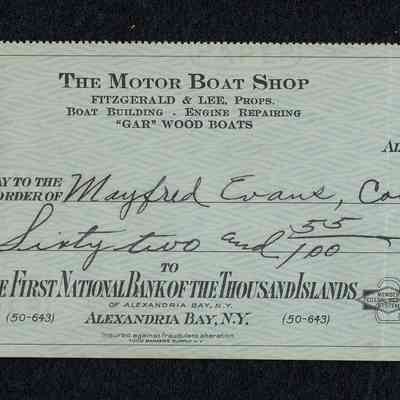 THE MOTOR BOAT SHOP
FITZGERALD & LEE, PROPS.
BOAT BUILDING - ENGINE REPAIRING
"GAR" WOOD BOATS
AL
AY TO THE
ORDER OF Mayfred Evans, Co
Sixty two and 55/100
TO
E FIRST NATIONAL BANK OF THE THOUSAND ISLANDS
OF ALEXANDRIA BAY, N.Y.
(50-643) ALEXANDRIA BAY, N.Y. (50-643)
Insured against fraudulent alteration